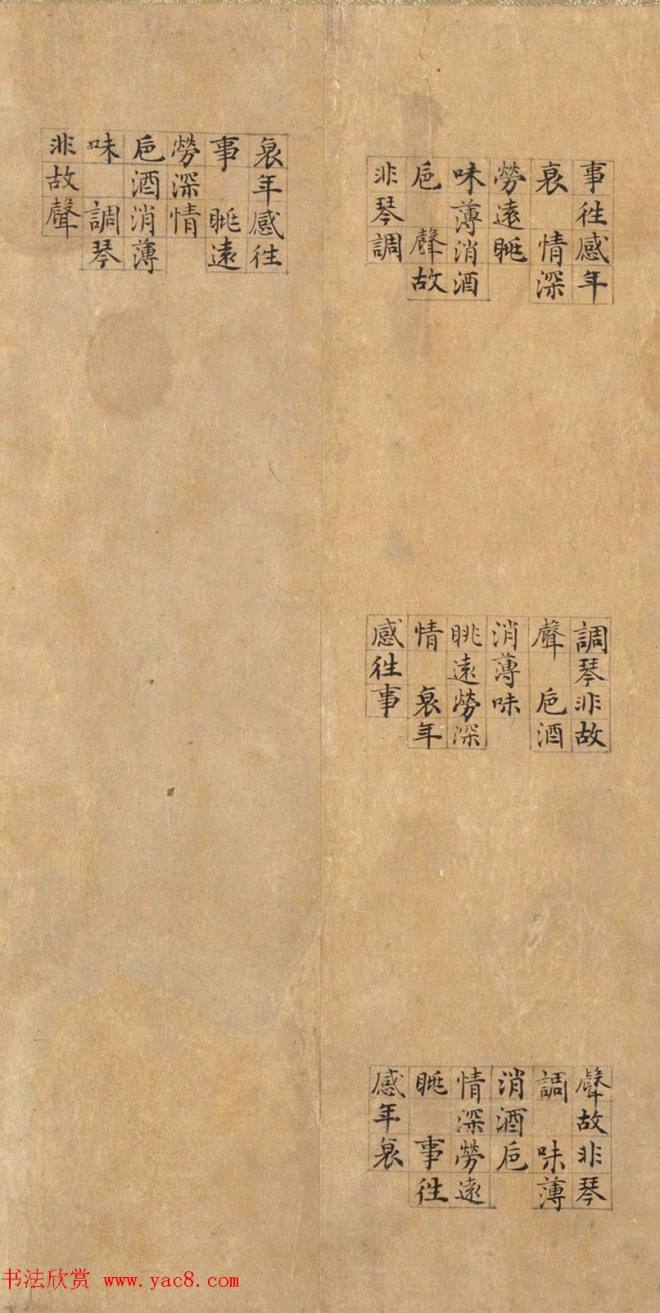 事往感年
衰 情深
勞遠眺
味薄消酒
巵 聲故
非琴調
調琴非故
聲 巵酒
消薄味
眺遠勞深
情 衰年
感往事
聲故非琴
調 味薄
消酒巵
情深勞遠
眺 事往
感年衰
衰年感往
事 眺遠
勞深情
巵酒消薄
味 調琴
非故聲
书法欣赏 www.yac8.com